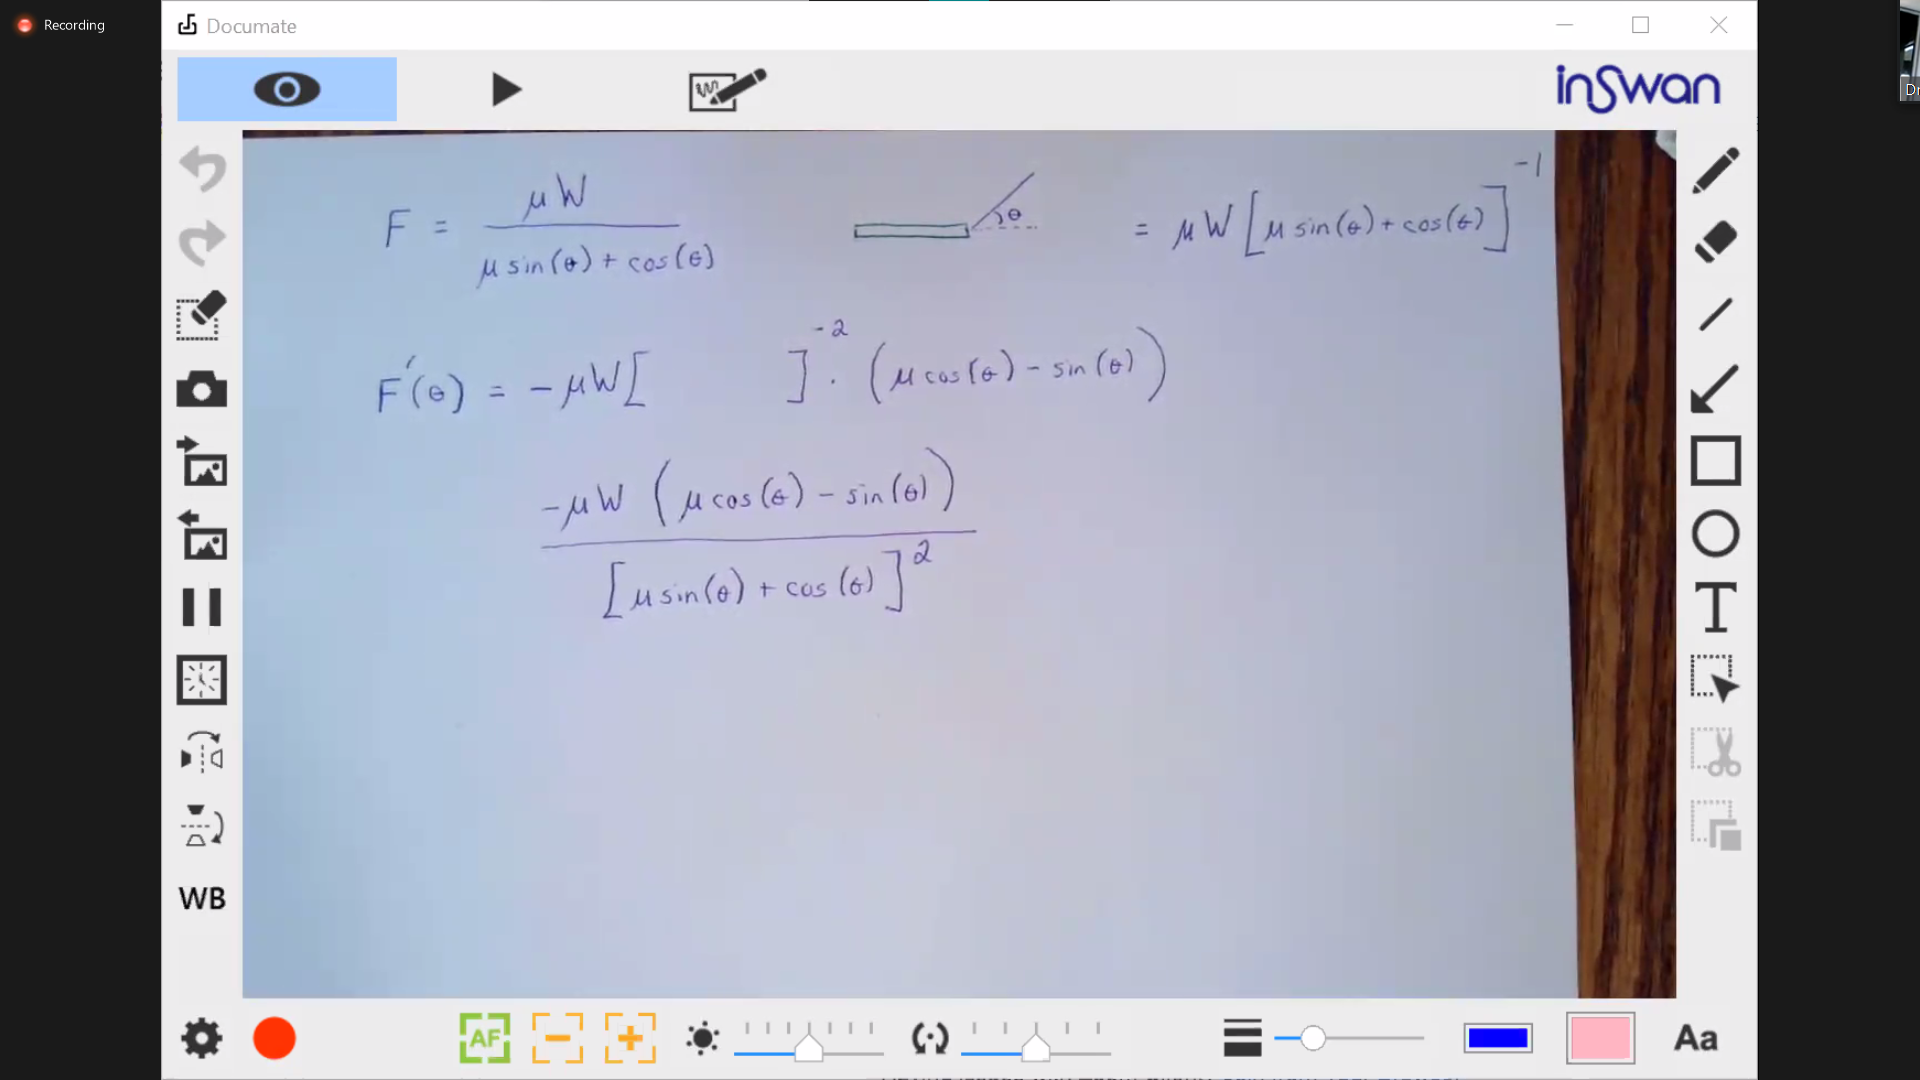 Recording
Documate
inSwan
Dr
F = μW / μ sin(θ) + cos(θ)
θ
= μW [μ sin(θ) + cos(θ)]⁻¹
F′(θ) = −μW [ ]⁻² · (μ cos(θ) − sin(θ))
−μW (μ cos(θ) − sin(θ))
[μ sin(θ) + cos(θ)]²
T
WB
AF
Aa